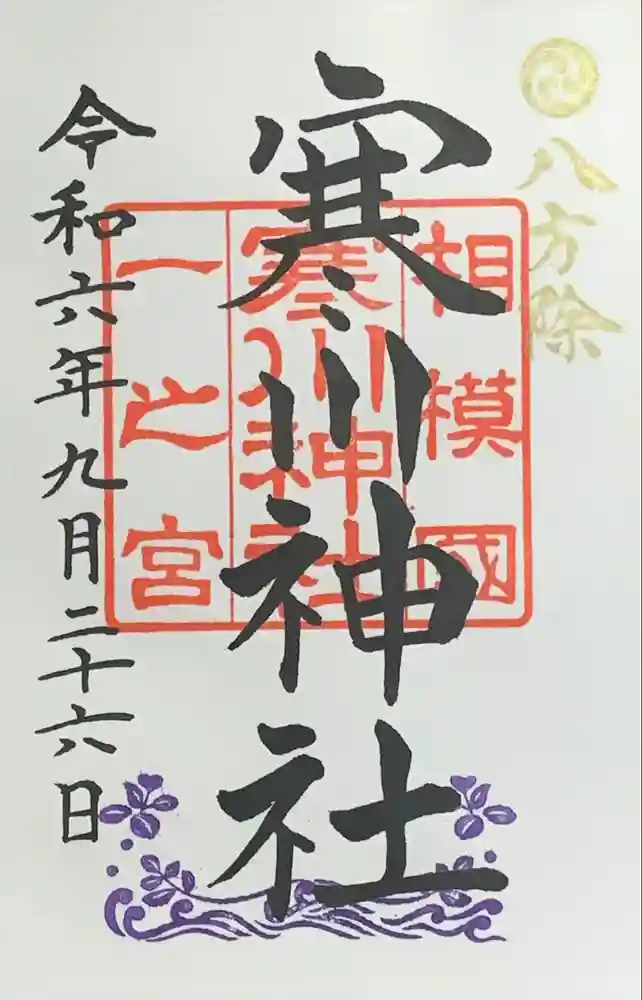 八方除
寒川神社
相模國
寒川神社
一之宮
令和六年九月二十六日